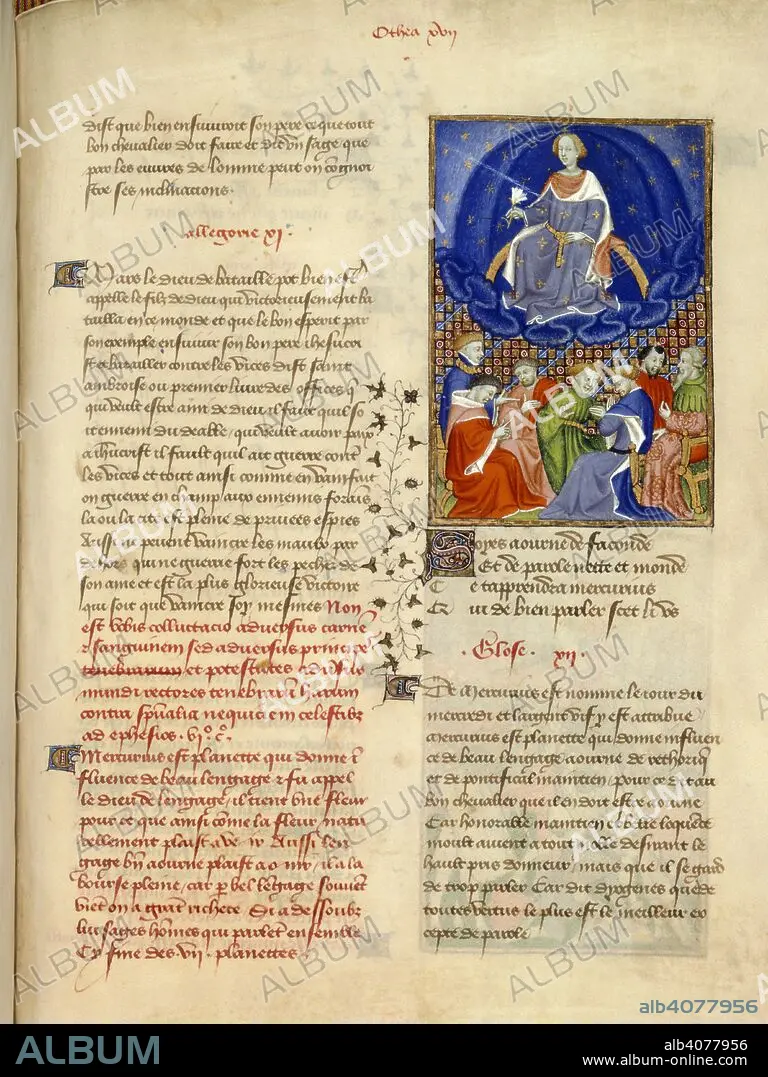 Othea xvij
dist que bien ensuivroit son pere ce que tout
bon chevalier doit faire et dit un sage que
par les euvres de lomme peut on cognoi
stre ses inclinacions.
allegorie xi
Mars le dieu de bataille pot bien est
appelle le filz de dieu qui victorieusement ba
tailla en ce monde et que le bon esperit par
son exemple ensuivir son bon pere ihesucri
st et batailler contre les vices dist saint
ambroise ou premier livre des offices q
qui veult estre ami de dieu il faut quil so
it ennemi du deable, qui veult avoir paix
a ihucrist il fault quil ait guerre cont
les vices et tout ainsi comme en vain fait
on guerre en champ aux ennemis forains
la ou la cite est pleine de privees espies
Aussi ne peuvent vaincre les maulx par
dehors qui ne guerre fort les pechez de
son ame et est la plus glorieuse victoire
qui soit que vaincre soy mesmes Non
est vobis colluctacio adversus carnem
z sanguinem sed adversus principes
tenebrarum et potestates adversus
mundi rectores tenebrarum harum
contra spiritualia nequicie in celestibus
ad ephesios. vi.º c.º
Mercurius est planette qui donne in
fluence de beau lengage z fu appel
le dieu de lengage, il tient une fleur
pour ce que ainsi come la fleur natu
rellement plaist a veir Aussi len
gage bien aourne plaist a oir, il a la
bourse pleine, car par bel lengage souvent
vient on a grant richece Si a dessoubz
lui sages homes qui parlent ensemble
Cy fine des .vii. planettes
Soyes aourne de faconde
Et de parole nette et monde
Ce tapprendra mercurius
Qui de bien parler scet les us
Glose xii.
De Mercurius est nomme le iour du
mercredi et largent vif y est attribue
mercurius est planette qui donne influen
ce de beau lengage aourne de rethoriq
et de pontifical maintien, pour ce dit au
bon chevalier que il en doit estre aourne
Car honorable maintien et belle loquence
moult avient a tout noble desirant le
hault pris donneur, mais que il se gard
de trop parler Car dit dyogenes que de
toutes vertus le plus est le meilleur ex
cepte de parole
ALBUM
alb4077956
ALBUM
alb4077956
www.album-online.com